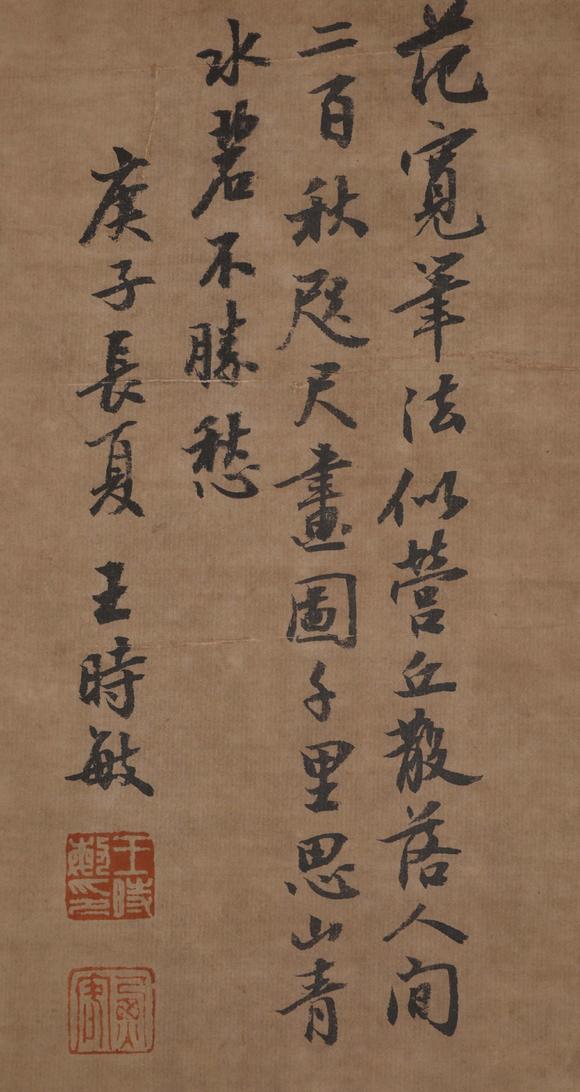 范寬筆法似營丘散落人間
二百秋咫尺畫圖千里思山青
水碧不勝愁
庚子長夏 王時敏
王時敏印